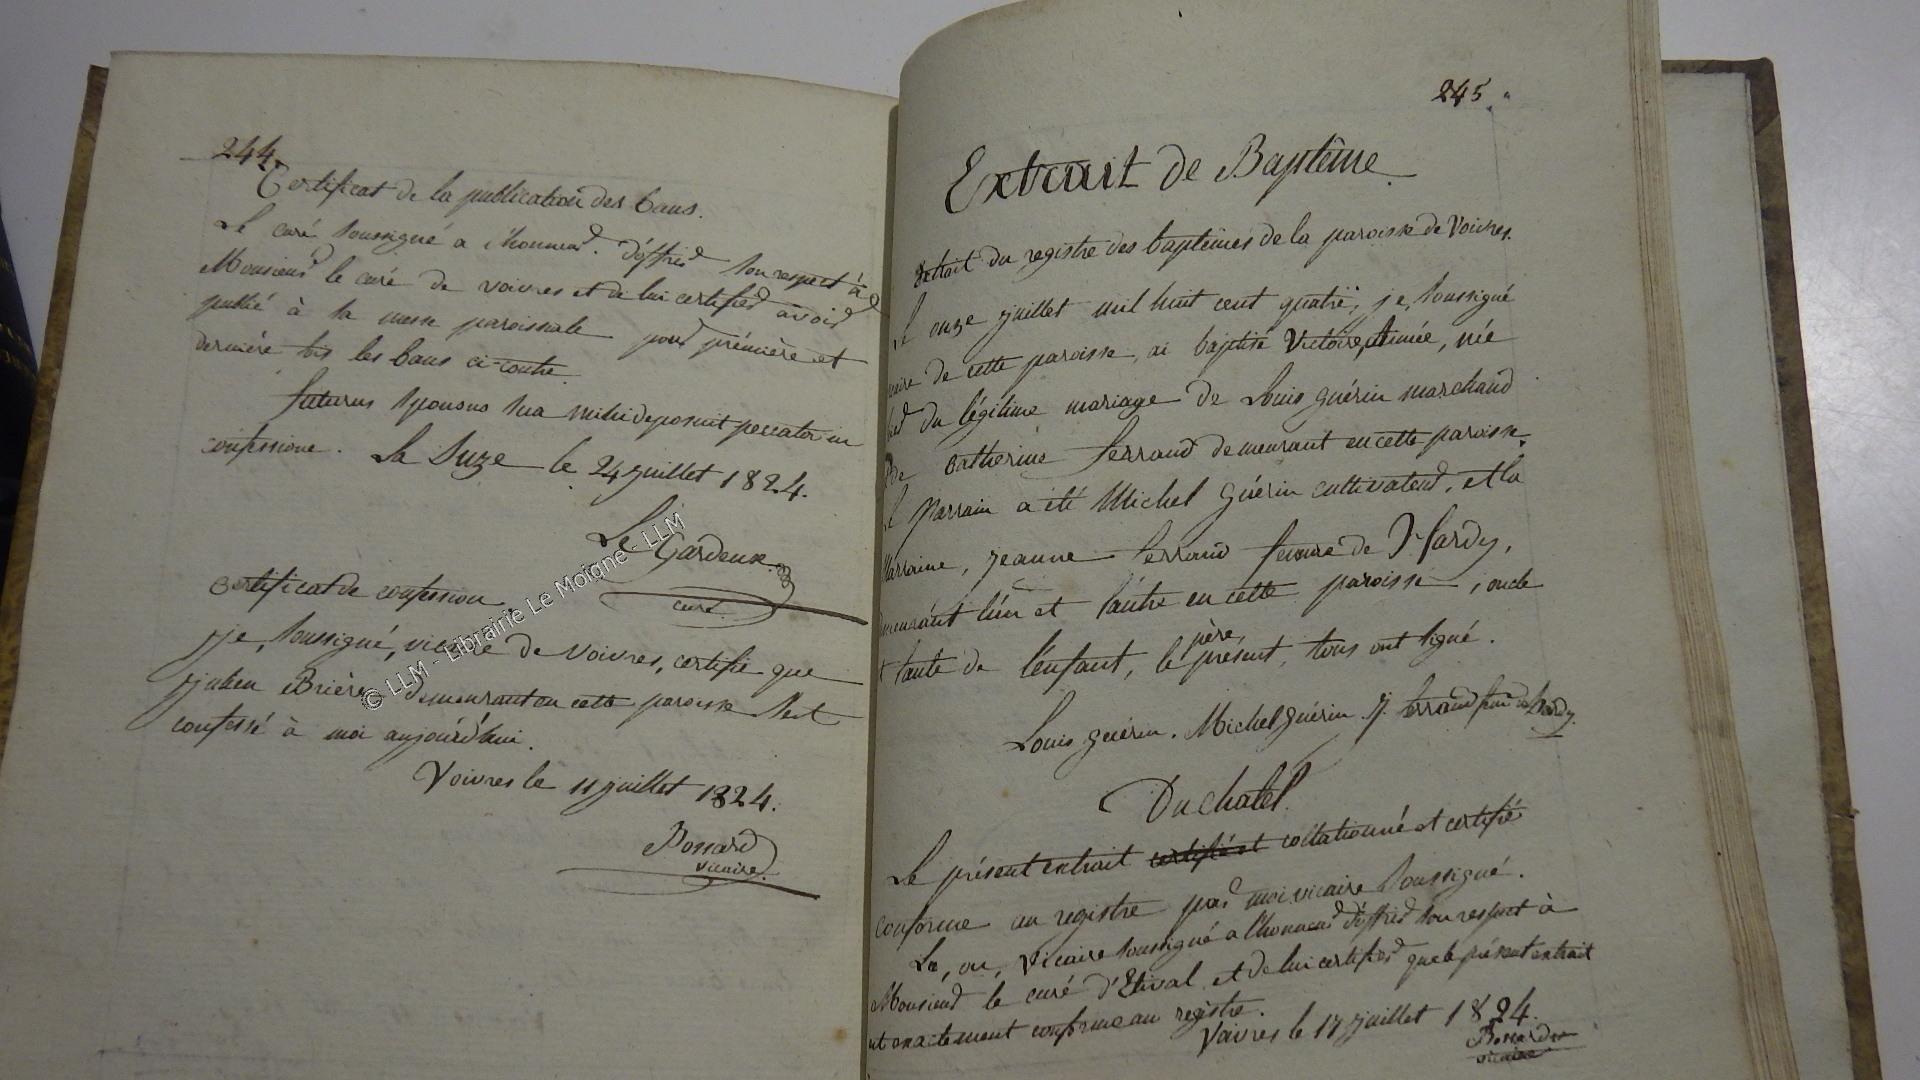 244.
Certificat de la publication des bans.
Le curé soussigné a l'honneur d'offrir son respect à
Monsieur le curé de voivres et de lui certifier avoir
publié à la messe paroissiale pour première et
dernière fois les bans ci-contre.
futurus sponsus sua mihi deposuit peccator in
confessione. La Suze le 24 juillet 1824.
Le Gardeux
curé
Certificat de confession.
je, soussigné, vicaire de Voivres, certifie que
julien Brière demeurant en cette paroisse s'est
confessé à moi aujourd'hui.
Voivres le 11 juillet 1824.
Bossard
vicaire.
© LLM - Librairie Le Moigne - LLM
245.
Extrait de Baptême.
extrait du registre des baptêmes de la paroisse de Voivres.
Le onze juillet mil huit cent quatre, je, soussigné
de cette paroisse, ai baptisé Victoire, Aimée, née
du légitime mariage de Louis guérin marchand
de catherine ferrand demeurant en cette paroisse.
Le Parrain a été Michel guérin cultivateur, et la
Marraine, jeanne ferrand femme de Jn hardy,
demeurant l'un et l'autre en cette paroisse, oncle
et tante de l'enfant, le père présent, tous ont signé.
Louis guérin. Michel guérin. J. ferrand fem de hardy.
Duchatel.
Le présent extrait certifié et collationné et certifié
conforme au registre par moi vicaire soussigné.
Le, ou, Vicaire soussigné a l'honneur d'offrir son respect à
Monsieur le curé d'Etival et de lui certifier que le présent extrait
est exactement conforme au registre.
Voivres le 17 juillet 1824.
Bossard
vicaire